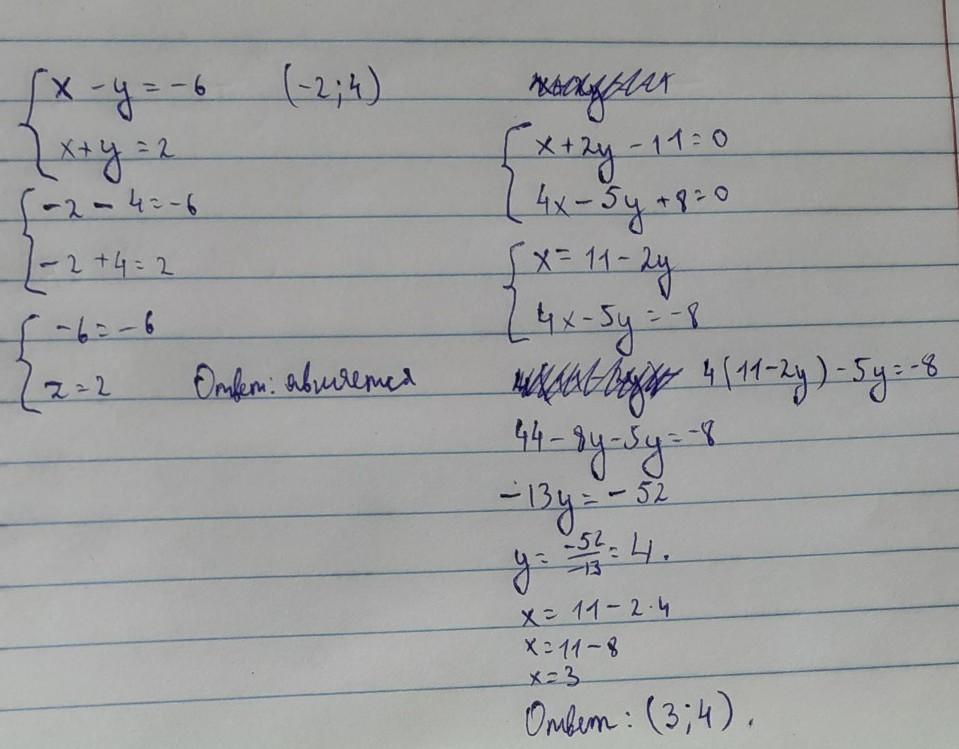 x - y = -6 (-2;4)
x + y = 2
-2 - 4 = -6
-2 + 4 = 2
-6 = -6
2 = 2 Ответ: является
x + 2y - 11 = 0
4x - 5y + 8 = 0
x = 11 - 2y
4x - 5y = -8
4(11 - 2y) - 5y = -8
44 - 8y - 5y = -8
-13y = -52
y = -52/-13 = 4.
x = 11 - 2·4
x = 11 - 8
x = 3
Ответ: (3;4).